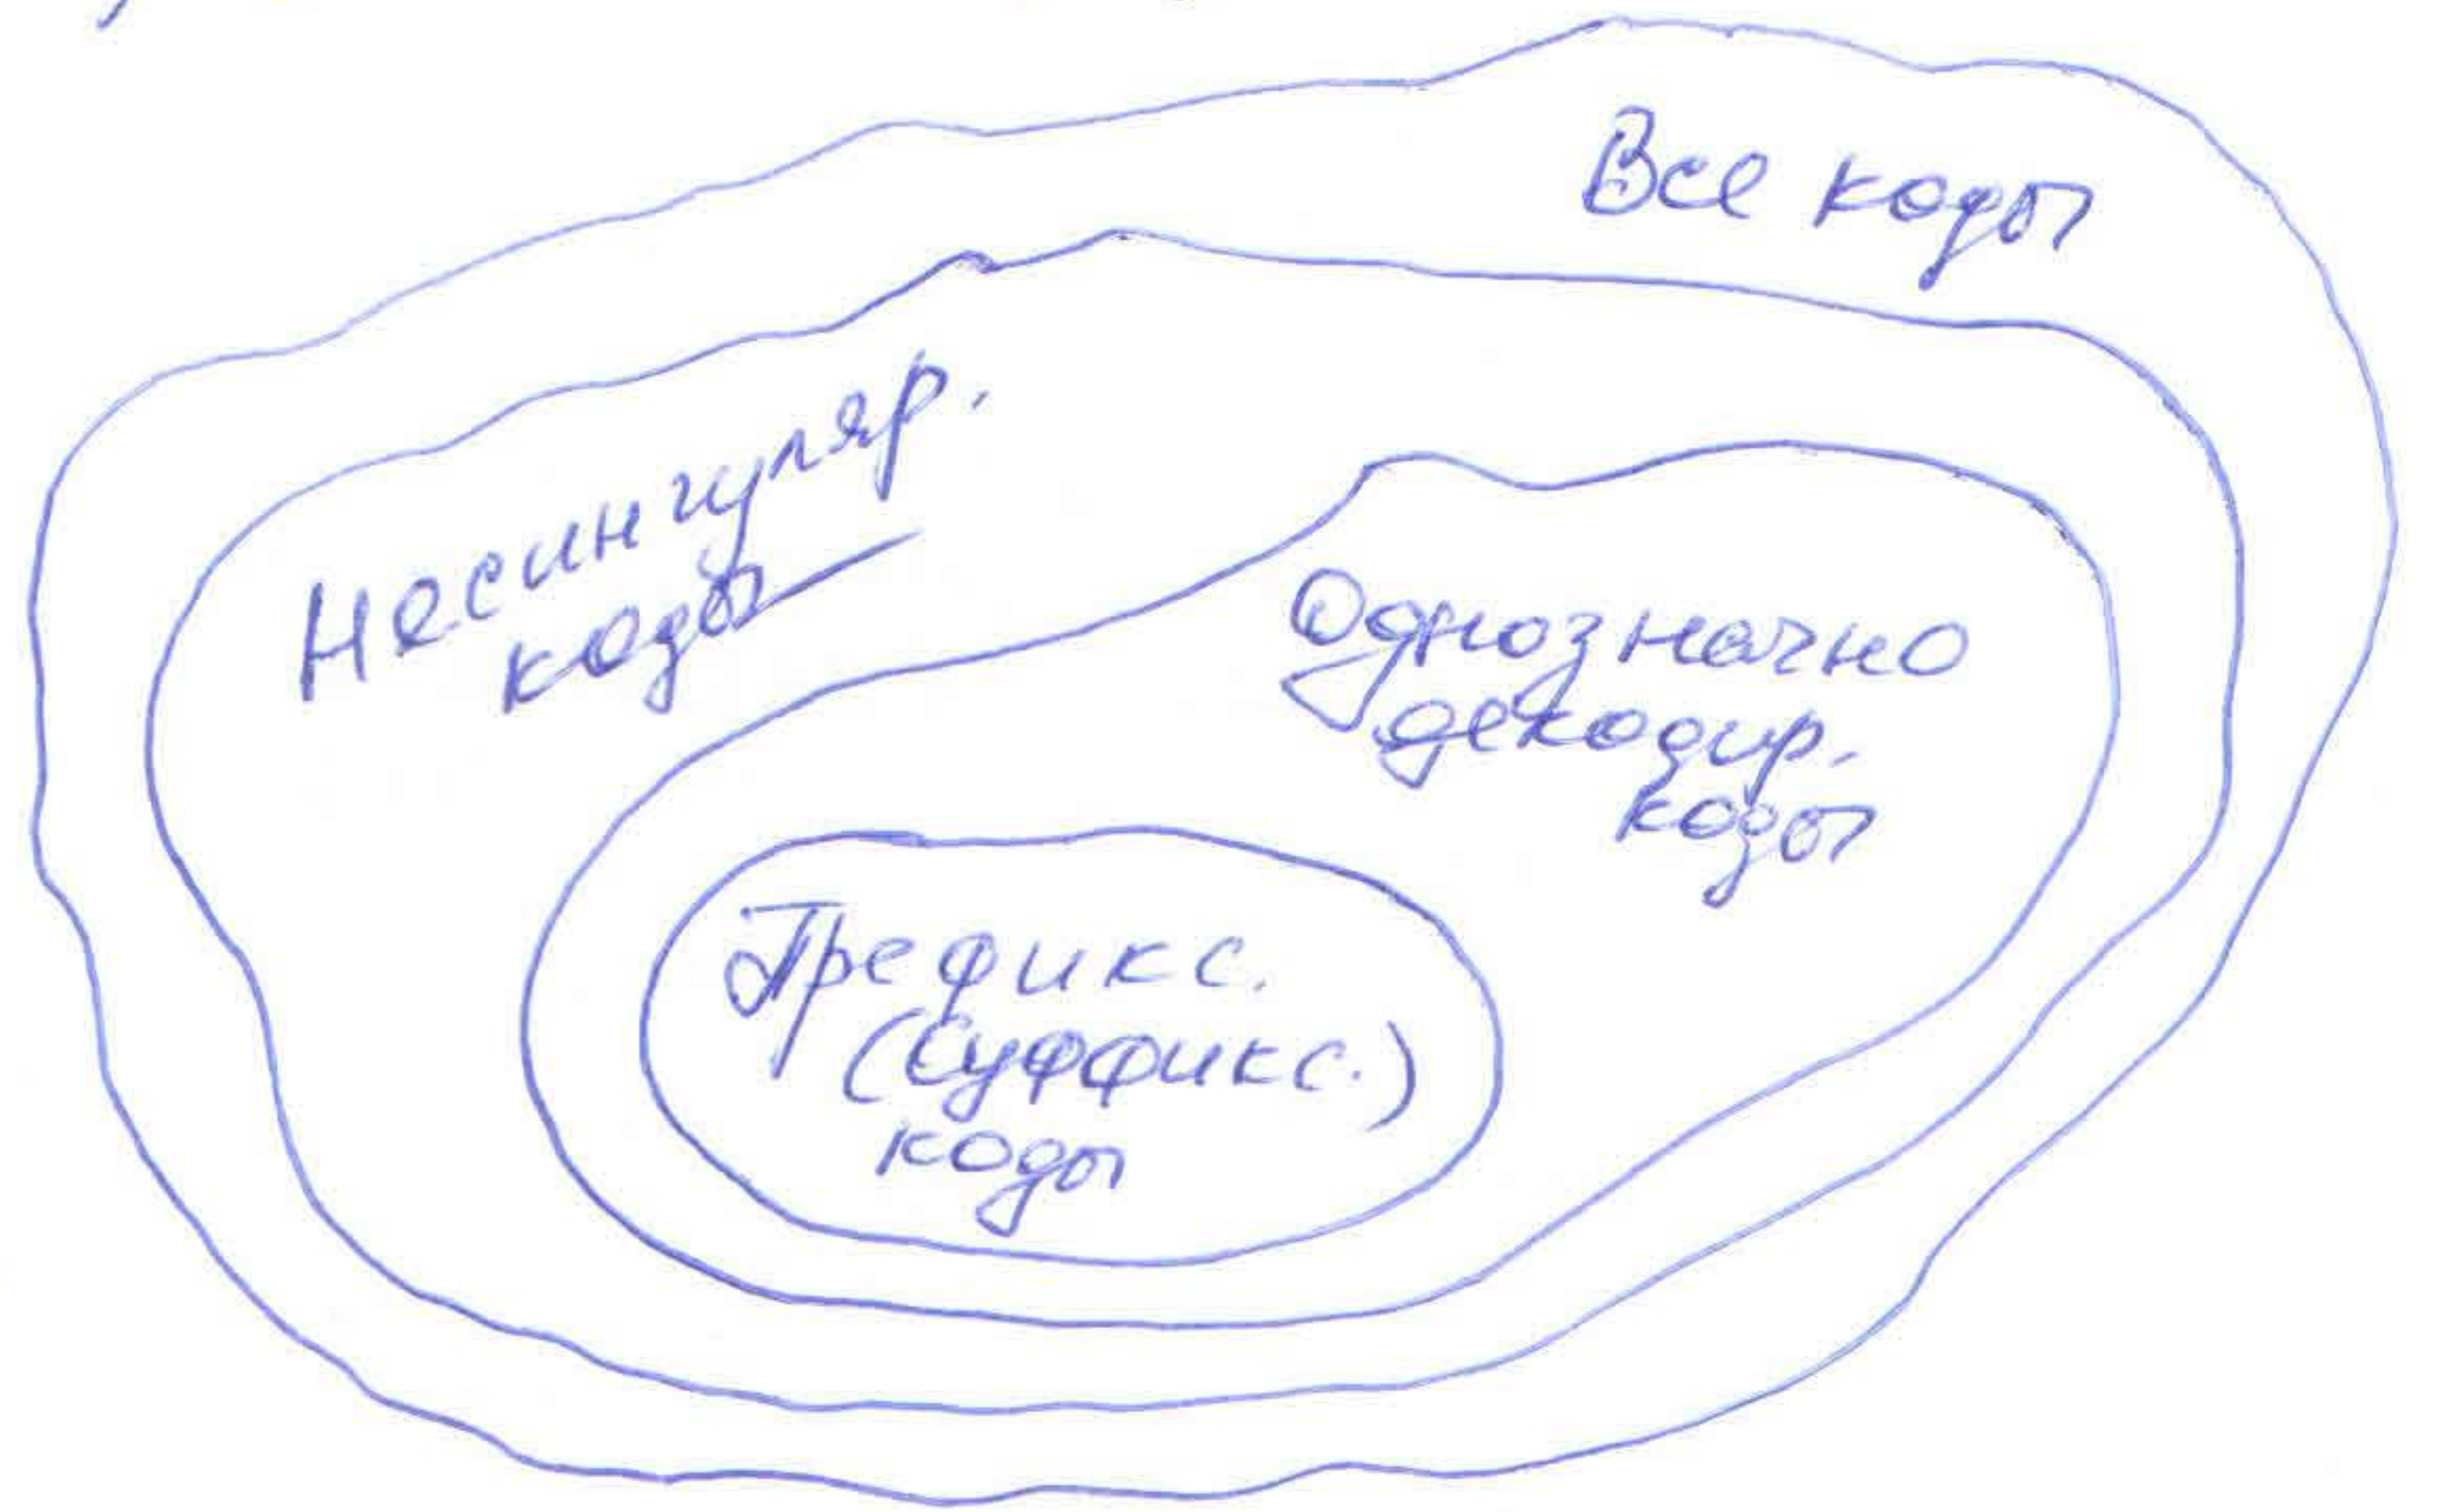 Все коды
Несингуляр.
коды
Однозначно
декодир.
коды
Префикс.
(Суффикс.)
коды